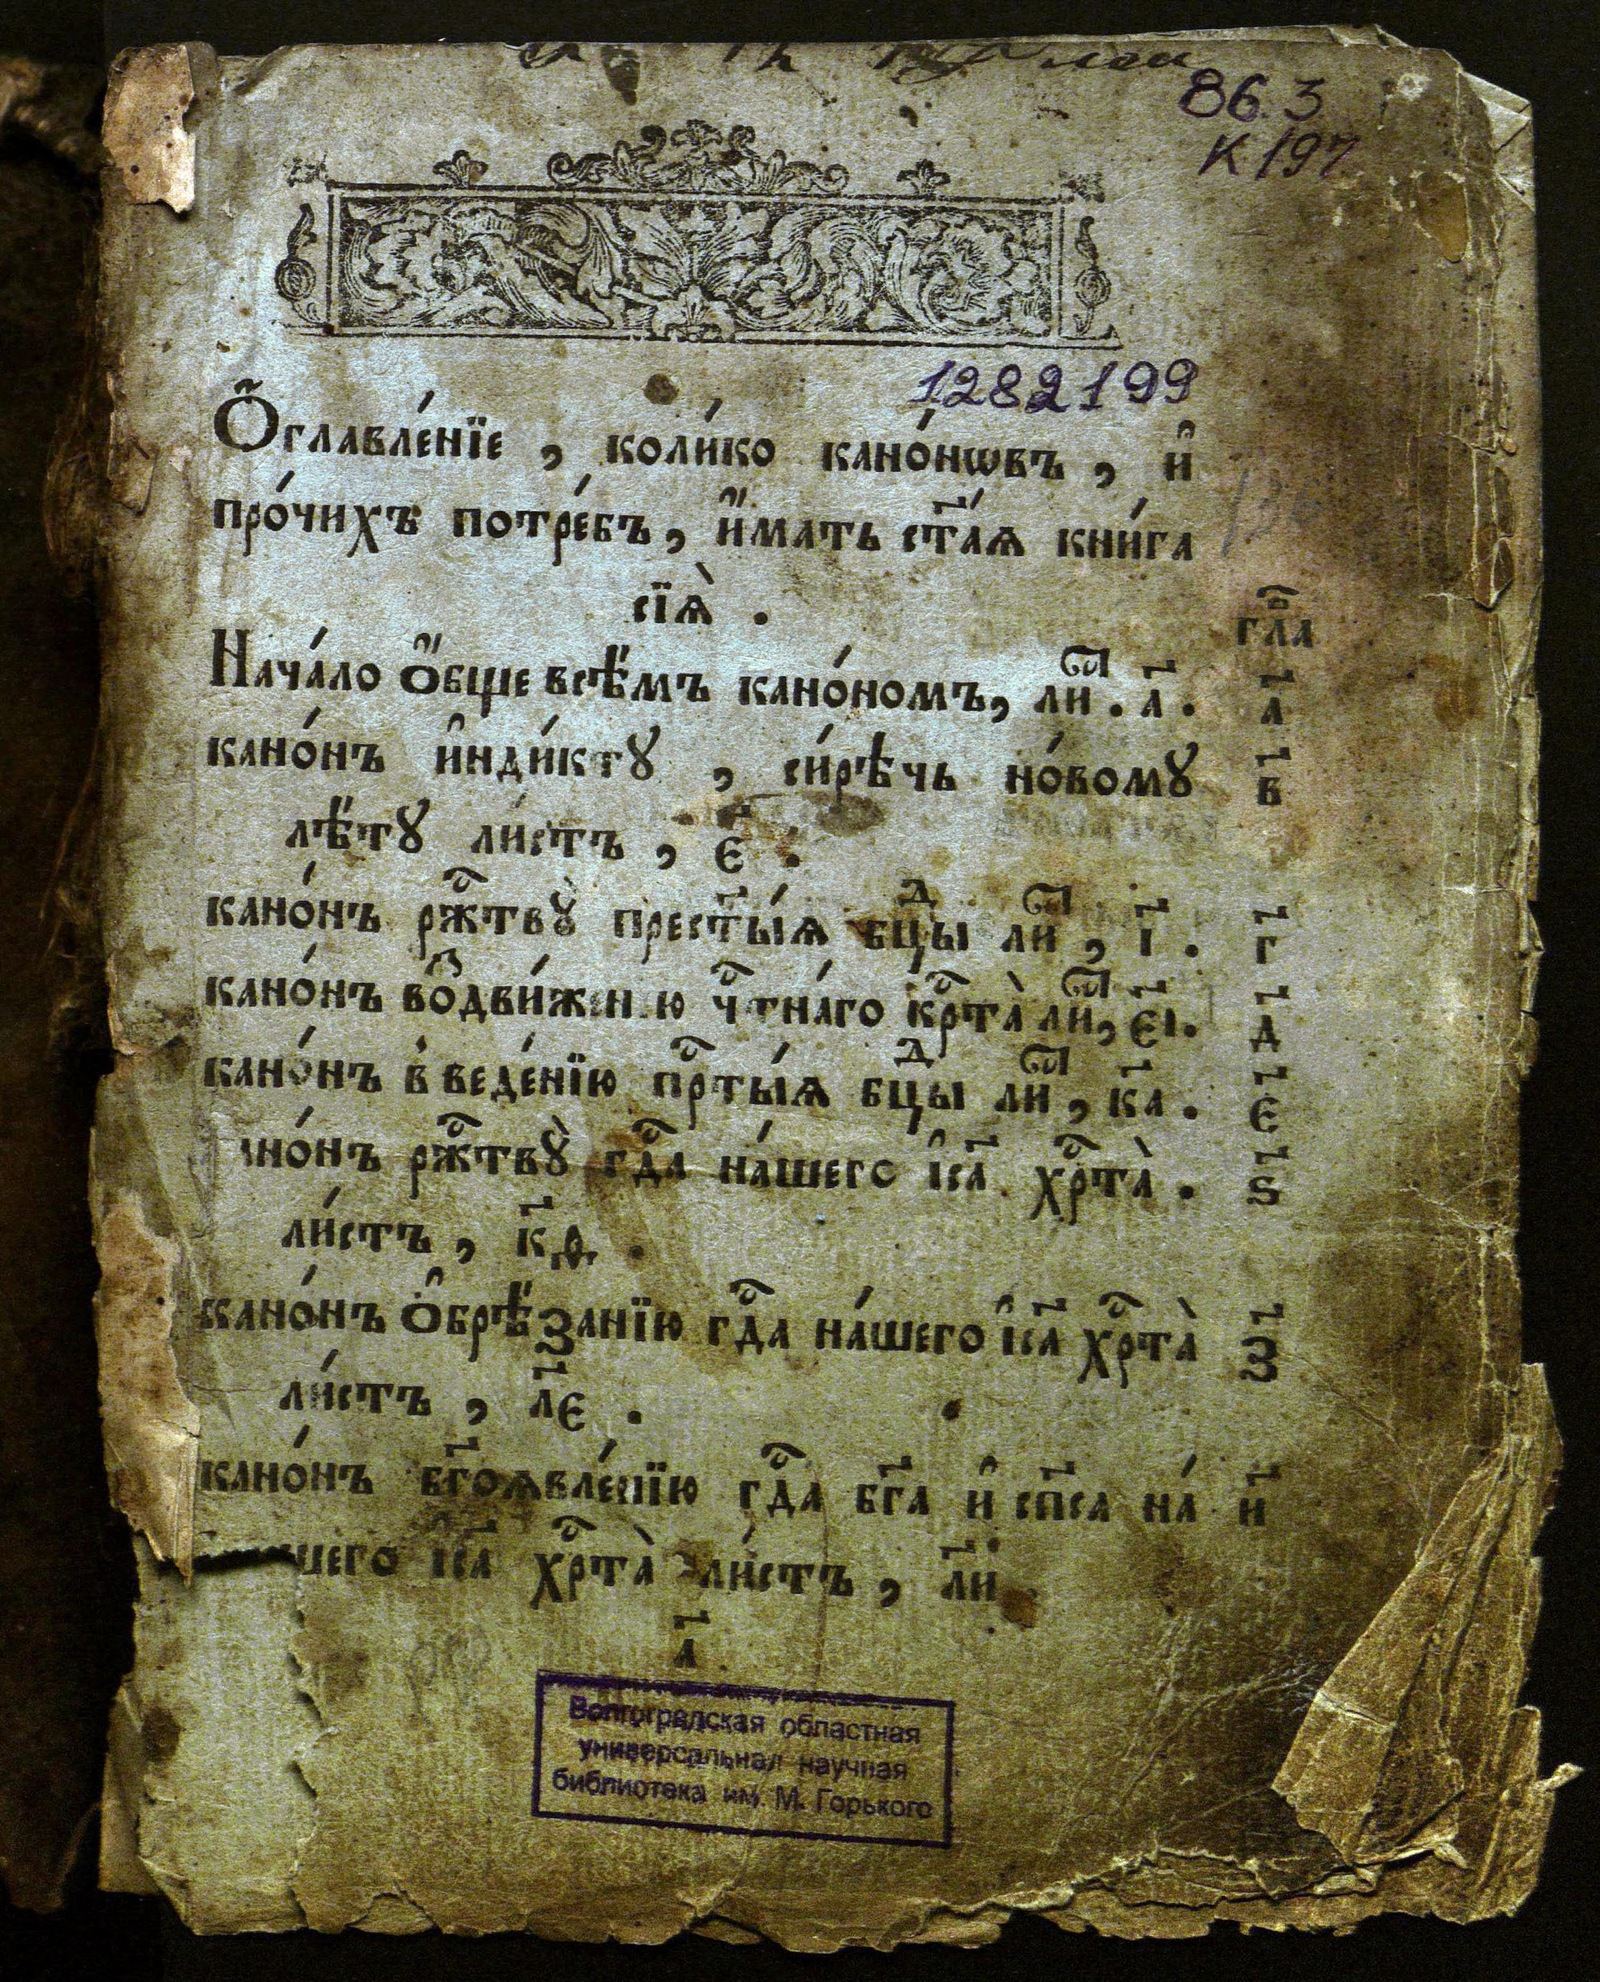 86.3
К 197
1282199
Ѻ҆главле́нїе , коли́ко кано́нѡвъ , и҆
про́чихъ потре́бъ , и҆́мать ст҃а́ѧ кни́га
сїѧ̀ .
гла҃
Нача́ло ѻ҆́бще всѣ́мъ кано́номъ, лиⷭ҇ . а҃ . а҃
кано́нъ и҆нди́ктꙋ , си́рѣчь но́вомꙋ в҃
лѣ́тꙋ ли́стъ , є҃ .
кано́нъ рж҇твꙋ̀ прест҃ы́ѧ бцⷣы лиⷭ҇ , і҃ . г҃
кано́нъ воⷥдви́женїю чⷭ҇тна́го крⷭ҇та̀ лиⷭ҇, є҃і. д҃
кано́нъ в̾ведє́нїю прⷭ҇ты́ѧ бцⷣы лиⷭ҇ , к҃а . є҃
кано́нъ рж҇твꙋ̀ гдⷭ҇а на́шего і҆с҃а хрⷭ҇та̀ . ѕ҃
ли́стъ , к҃ѳ .
кано́нъ ѻ҆брѣ́занїю гдⷭ҇а на́шего і҆с҃а хрⷭ҇та̀ з҃
ли́стъ , л҃є .
кано́нъ бг҃оѧвле́нїю гдⷭ҇а бг҃а и҆ сп҃са на́ и҃
шего і҆с҃а хрⷭ҇та̀ ли́стъ , л҃и
а҃
Волгоградская областная
универсальная научная
библиотека им. М. Горького